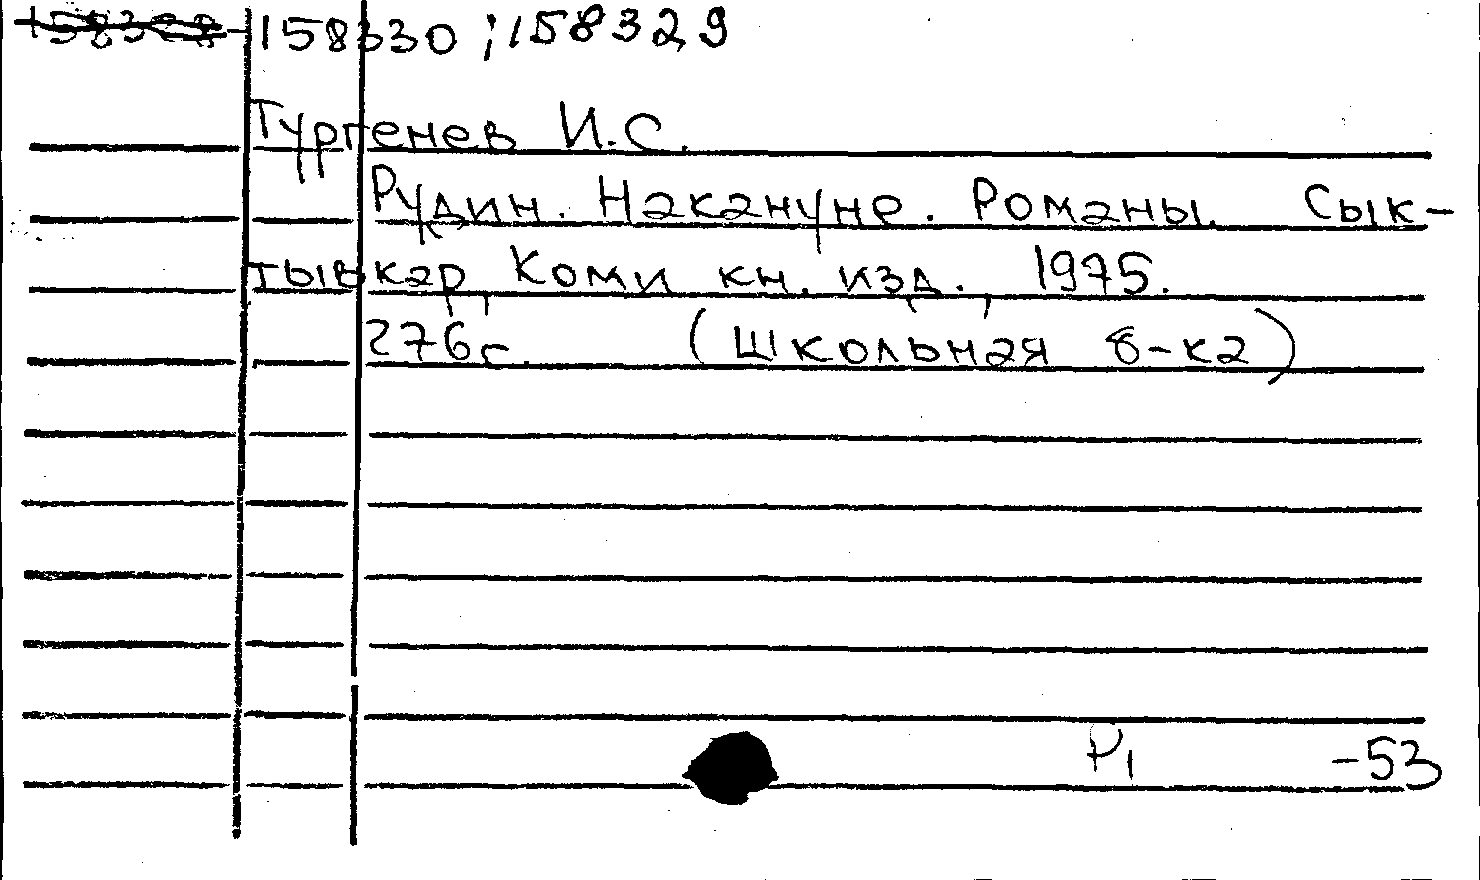 158328-158330; 158329
Тургенев И.С.
Рудин. Накануне. Романы. Сык-
тывкар, Коми кн. изд., 1975.
276с. (Школьная б-ка)
Р1 -53